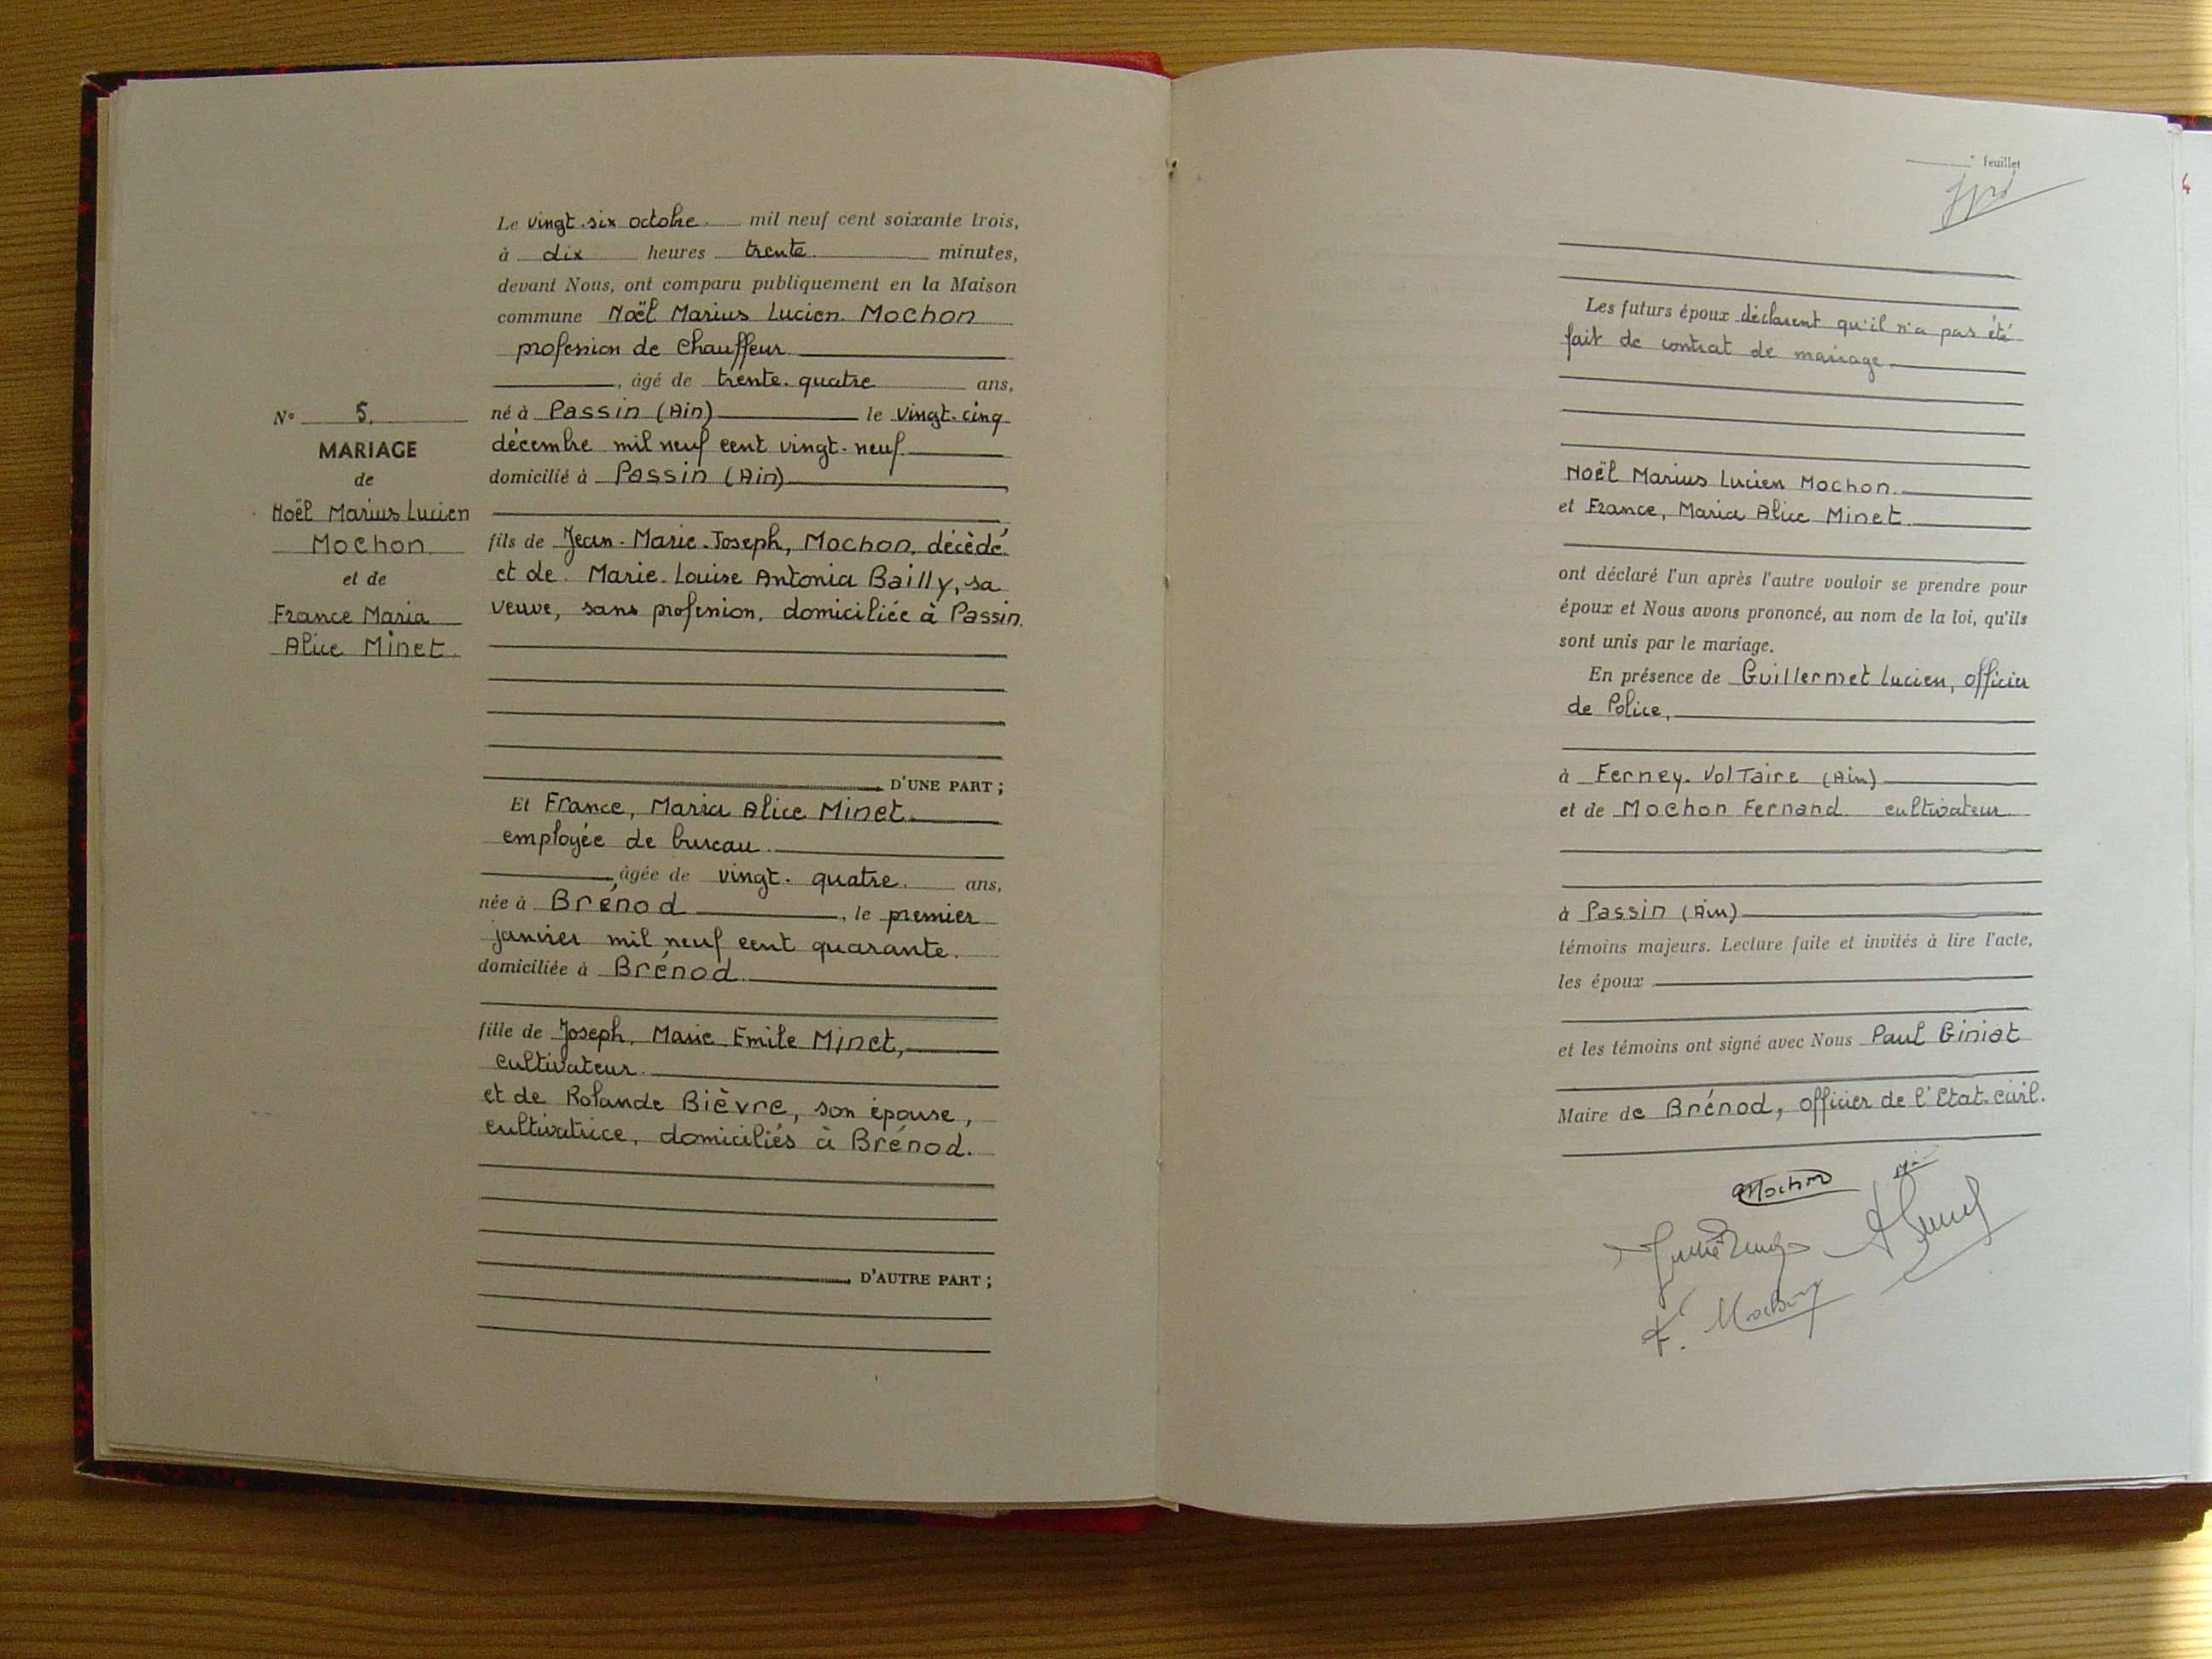 Le vingt-six octobre mil neuf cent soixante trois,
à dix heures trente minutes,
devant Nous, ont comparu publiquement en la Maison
commune Noël Marius Lucien Mochon
profession de Chauffeur
, âgé de trente-quatre ans,
né à Passin (Ain) le vingt-cinq
décembre mil neuf cent vingt-neuf
domicilié à Passin (Ain)
fils de Jean-Marie-Joseph, Mochon, décédé
et de Marie-Louise Antonia Bailly, sa
veuve, sans profession, domiciliée à Passin.
D'UNE PART ;
Et France, Maria Alice Minet
employée de bureau
, âgée de vingt-quatre ans,
née à Brénod, le premier
janvier mil neuf cent quarante.
domiciliée à Brénod
fille de Joseph, Marie Emile Minet,
cultivateur
et de Rolande Bièvre, son épouse,
cultivatrice, domiciliés à Brénod.
D'AUTRE PART ;
N° 5.
MARIAGE
de
Noël Marius Lucien
Mochon
et de
France Maria
Alice Minet
feuillet
4
Les futurs époux déclarent qu'il n'a pas été
fait de contrat de mariage
Noël Marius Lucien Mochon
et France, Maria Alice Minet
ont déclaré l'un après l'autre vouloir se prendre pour
époux et Nous avons prononcé, au nom de la loi, qu'ils
sont unis par le mariage.
En présence de Guillermet Lucien, officier
de Police,
à Ferney-Voltaire (Ain)
et de Mochon Fernand cultivateur
à Passin (Ain)
témoins majeurs. Lecture faite et invités à lire l'acte,
les époux
et les témoins ont signé avec Nous Paul Giniat
Maire de Brénod, officier de l'Etat-civil.
Mochon
F. Mochon